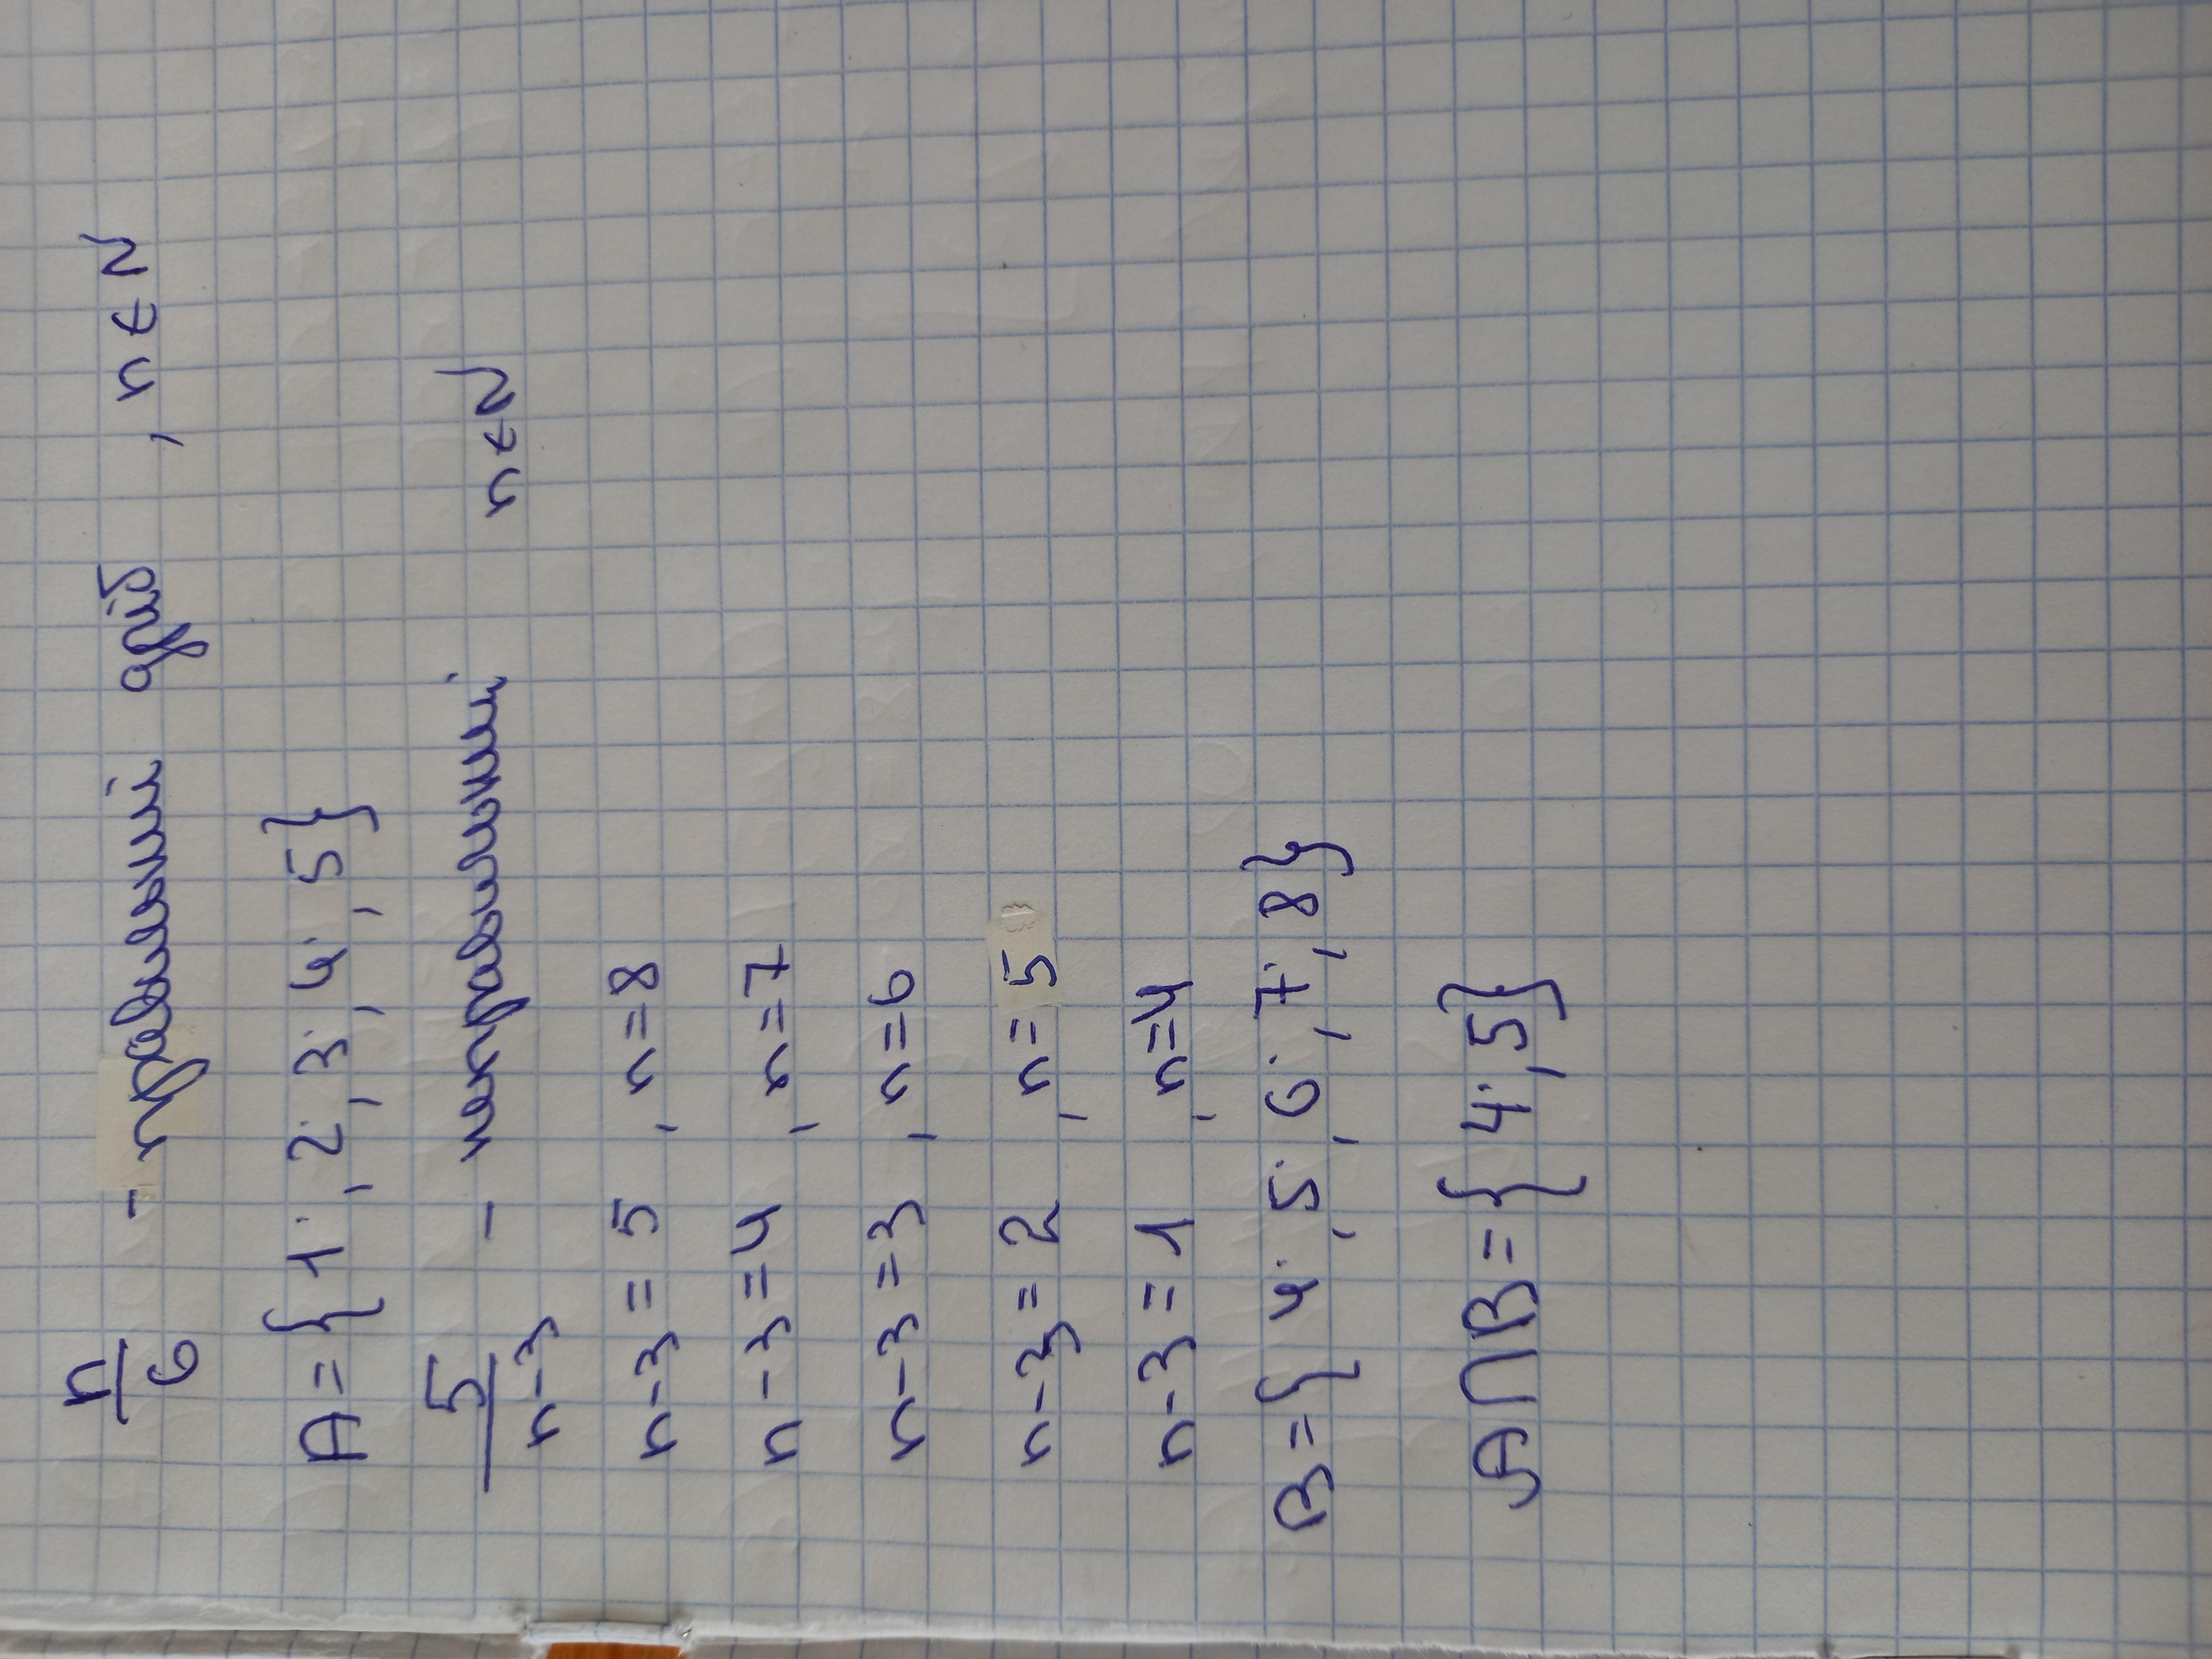 n/6 - правильний дріб , n ∈ N
A = { 1; 2; 3; 4; 5 }
5/(n-3) - неправильний n ∈ N
n-3 = 5 , n=8
n-3 =4 , n=7
n-3 =3 , n=6
n-3 = 2 , n=5
n-3 = 1 , n=4
B={ 4; 5; 6; 7; 8}
A∩B = { 4; 5}